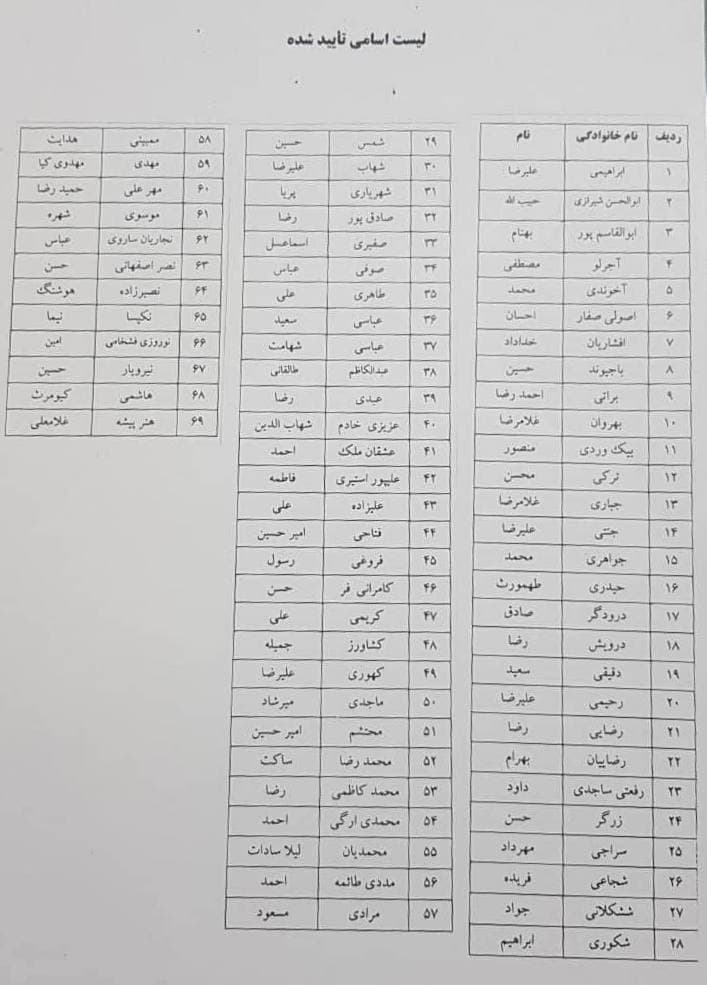 لیست اسامی تأیید شده
ردیف نام خانوادگی نام
۱ ابراهیمی علیرضا
۲ ابوالحسن شیرازی حبیب الله
۳ ابوالقاسم پور بهنام
۴ آجرلو مصطفی
۵ آخوندی محمد
۶ اصولی صفار احسان
۷ افشاریان خداداد
۸ باجیوند حسین
۹ براتی احمد رضا
۱۰ بهروان غلامرضا
۱۱ بیک وردی منصور
۱۲ ترکی محسن
۱۳ جباری غلامرضا
۱۴ جنتی علیرضا
۱۵ جواهری محمد
۱۶ حیدری طهمورث
۱۷ درودگر صادق
۱۸ درویش رضا
۱۹ دقیقی سعید
۲۰ رحیمی علیرضا
۲۱ رضایی رضا
۲۲ رضاییان بهرام
۲۳ رفعتی ساجدی داود
۲۴ زرگر حسن
۲۵ سراجی مهرداد
۲۶ شجاعی فریده
۲۷ ششکلانی جواد
۲۸ شکوری ابراهیم
۲۹ شمس حسین
۳۰ شهاب علیرضا
۳۱ شهریاری پریا
۳۲ صادق پور رضا
۳۳ صفیری اسماعسل
۳۴ صوفی عباس
۳۵ طاهری علی
۳۶ عباسی سعید
۳۷ عباسی شهامت
۳۸ عبدالکاظم طالقانی
۳۹ عبدی رضا
۴۰ عزیزی خادم شهاب الدین
۴۱ عشقان ملک احمد
۴۲ علیپور استیری فاطمه
۴۳ علیزاده علی
۴۴ فتاحی امیر حسین
۴۵ فروغی رسول
۴۶ کامرانی فر حسن
۴۷ کریمی علی
۴۸ کشاورز جمیله
۴۹ کهوری علیرضا
۵۰ ماجدی میرشاد
۵۱ محتشم امیر حسین
۵۲ محمد رضا ساکت
۵۳ محمد کاظمی رضا
۵۴ محمدی ارگی احمد
۵۵ محمدیان لیلا سادات
۵۶ مددی طائمه احمد
۵۷ مرادی مسعود
۵۸ ممبینی هدایت
۵۹ مهدی مهدوی کیا
۶۰ مهر علی حمید رضا
۶۱ موسوی شهره
۶۲ نجاریان ساروی عباس
۶۳ نصر اصفهانی حسن
۶۴ نصیرزاده هوشنگ
۶۵ نکیسا نیما
۶۶ نوروزی فشخامی امین
۶۷ نیرویار حسین
۶۸ هاشمی کیومرث
۶۹ هنر پیشه غلامعلی